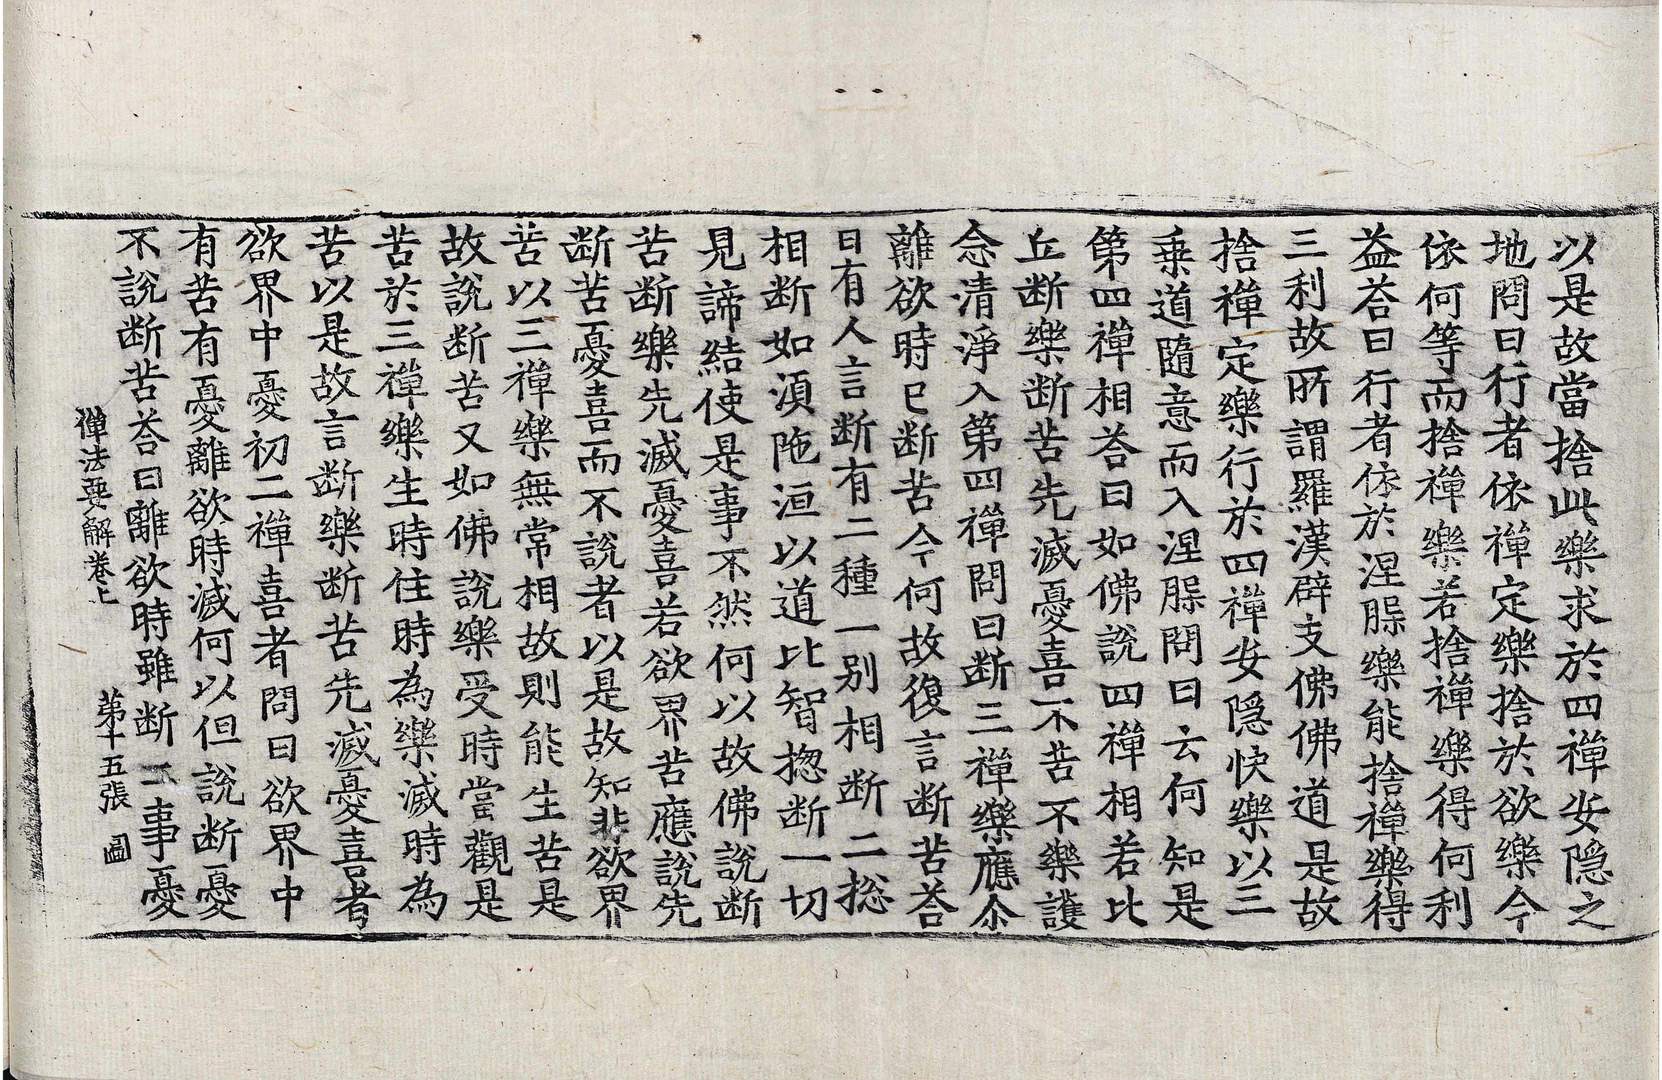 以是故當捨此樂求於四禪安隱之
地問曰行者依禪定樂捨於欲樂今
依何等而捨禪樂若捨禪樂得何利
益荅曰行者依於涅𣆶樂能捨禪樂得
三利故所謂羅漢辟支佛佛道是故
捨禪定樂行於四禪安隱快樂以三
乗道隨意而入涅𣆶問曰云何知是
第四禪相荅曰如佛說四禪相若比
丘断樂断苦先滅憂喜不苦不樂護
念清淨入第四禪問曰断三禪樂應尒
離欲時已断苦今何故復言断苦荅
曰有人言断有二種一別相断二揔
相断如湏陁洹以道比智揔断一切
見諦結使是事不然何以故佛說断
苦断樂先滅憂喜若欲界苦應說先
断苦憂喜而不說者以是故知非欲界
苦以三禪樂無常相故則能生苦是
故說断苦又如佛說樂受時當觀是
苦於三禪樂生時住時為樂滅時為
苦以是故言断樂断苦先滅憂喜者
欲界中憂初二禪喜者問曰欲界中
有苦有憂離欲時滅何以但說断憂
不說断苦荅曰離欲時雖断二事憂
禪法要解卷上 第十五張 圖